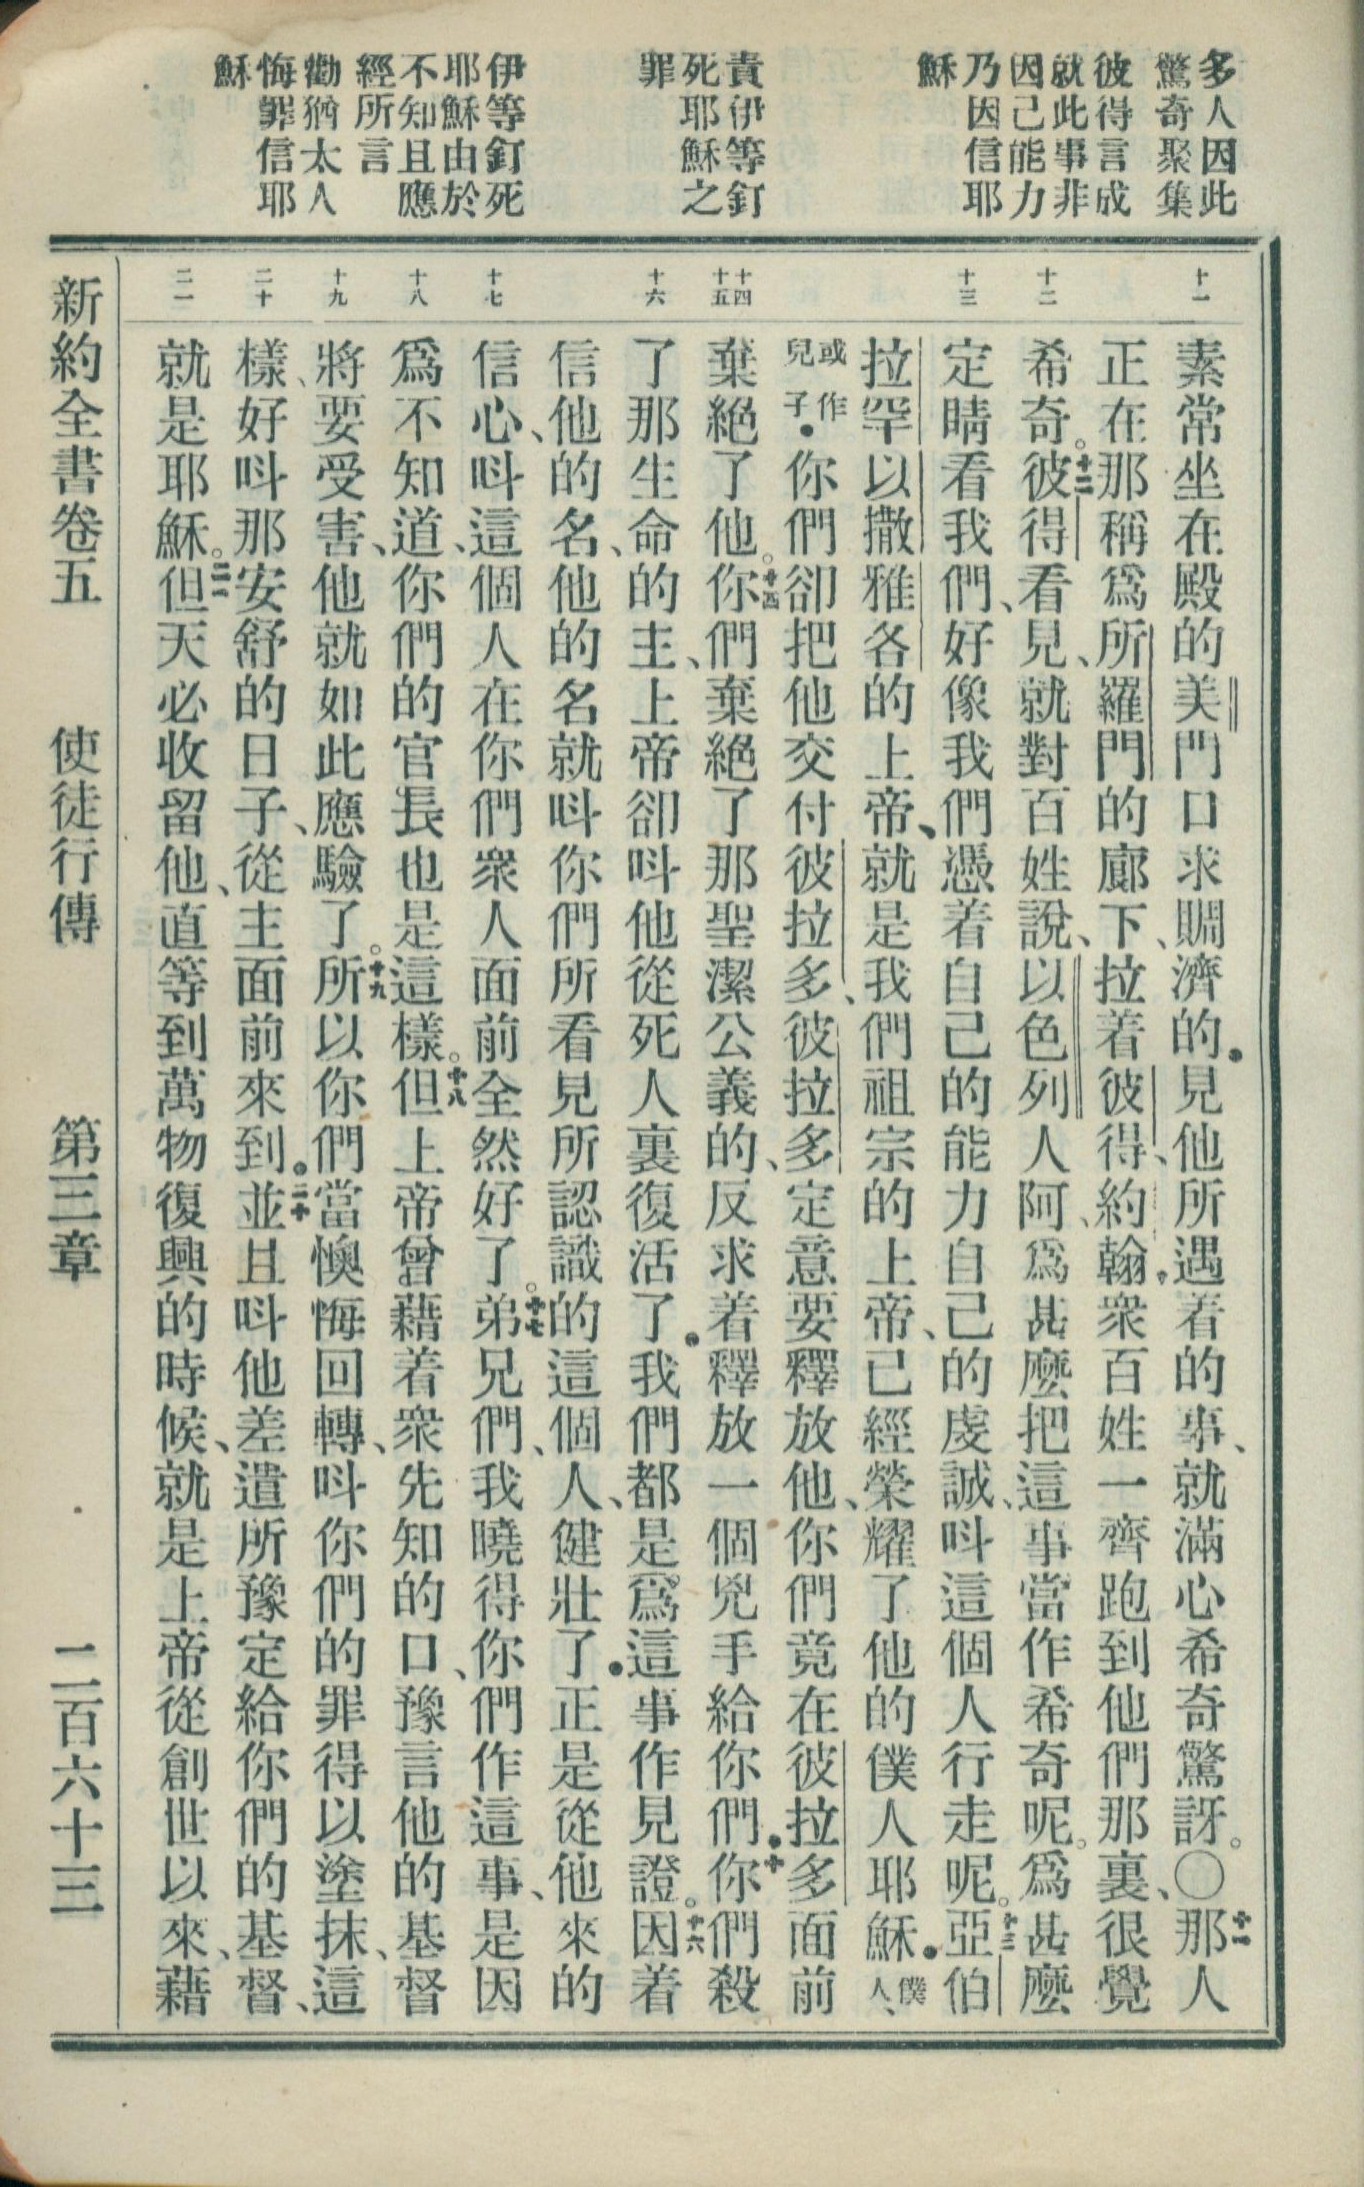 多人因此
驚奇聚集
彼得言成
就此事非
因己能力
乃因信耶
穌
責伊等釘
死耶穌之
罪
伊等釘死
耶穌由於
不知且應
經所言
勸猶太人
悔罪信耶
穌
十一
十二
十三
十四
十五
十六
十七
十八
十九
二十
二一
素常坐在殿的美門口求賙濟的.見他所遇着的事、就滿心希奇驚訝。〇十一那人
正在那稱爲所羅門的廊下、拉着彼得、約翰.衆百姓一齊跑到他們那裏、很覺
希奇。十二彼得看見、就對百姓說、以色列人阿、爲甚麽把這事當作希奇呢。爲甚麽
定睛看我們、好像我們憑着自己的能力自己的虔誠、呌這個人行走呢。十三亞伯
拉罕以撒雅各的上帝、就是我們祖宗的上帝、已經榮耀了他的僕人耶穌.僕人、
或作兒子.你們卻把他交付彼拉多、彼拉多定意要釋放他、你們竟在彼拉多面前
棄絕了他。十四你們棄絕了那聖潔公義的、反求着釋放一個兇手給你們.十五你們殺
了那生命的主、上帝卻呌他從死人裏復活了.我們都是爲這事作見證。十六因着
信他的名、他的名就呌你們所看見所認識的這個人、健壯了.正是從他來的
信心、呌這個人在你們衆人面前全然好了。十七弟兄們、我曉得你們作這事、是因
爲不知道、你們的官長也是這樣。十八但上帝曾藉着衆先知的口、豫言他的基督
將要受害、他就如此應驗了。十九所以你們當懊悔回轉、呌你們的罪得以塗抹、這
樣、好呌那安舒的日子、從主面前來到.二十並且呌他差遣所豫定給你們的基督、
就是耶穌。二一但天必收留他、直等到萬物復興的時候、就是上帝從創世以來、藉
新約全書卷五 使徒行傳 第三章 二百六十三